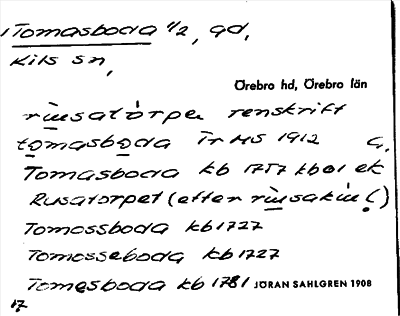 Tomasboda 1/2, gd,
Kils sn,
Örebro hd, Örebro län
rusatorpet renskrift
tomasboda Tr MS 1912 G.
Tomasboda kb 1757 kbd1 ek
Rusatorpet (efter rusakus!)
Tomossboda kb 1727
Tomosseboda kb 1727
Tomesboda kb 1781 JÖRAN SAHLGREN 1908
17